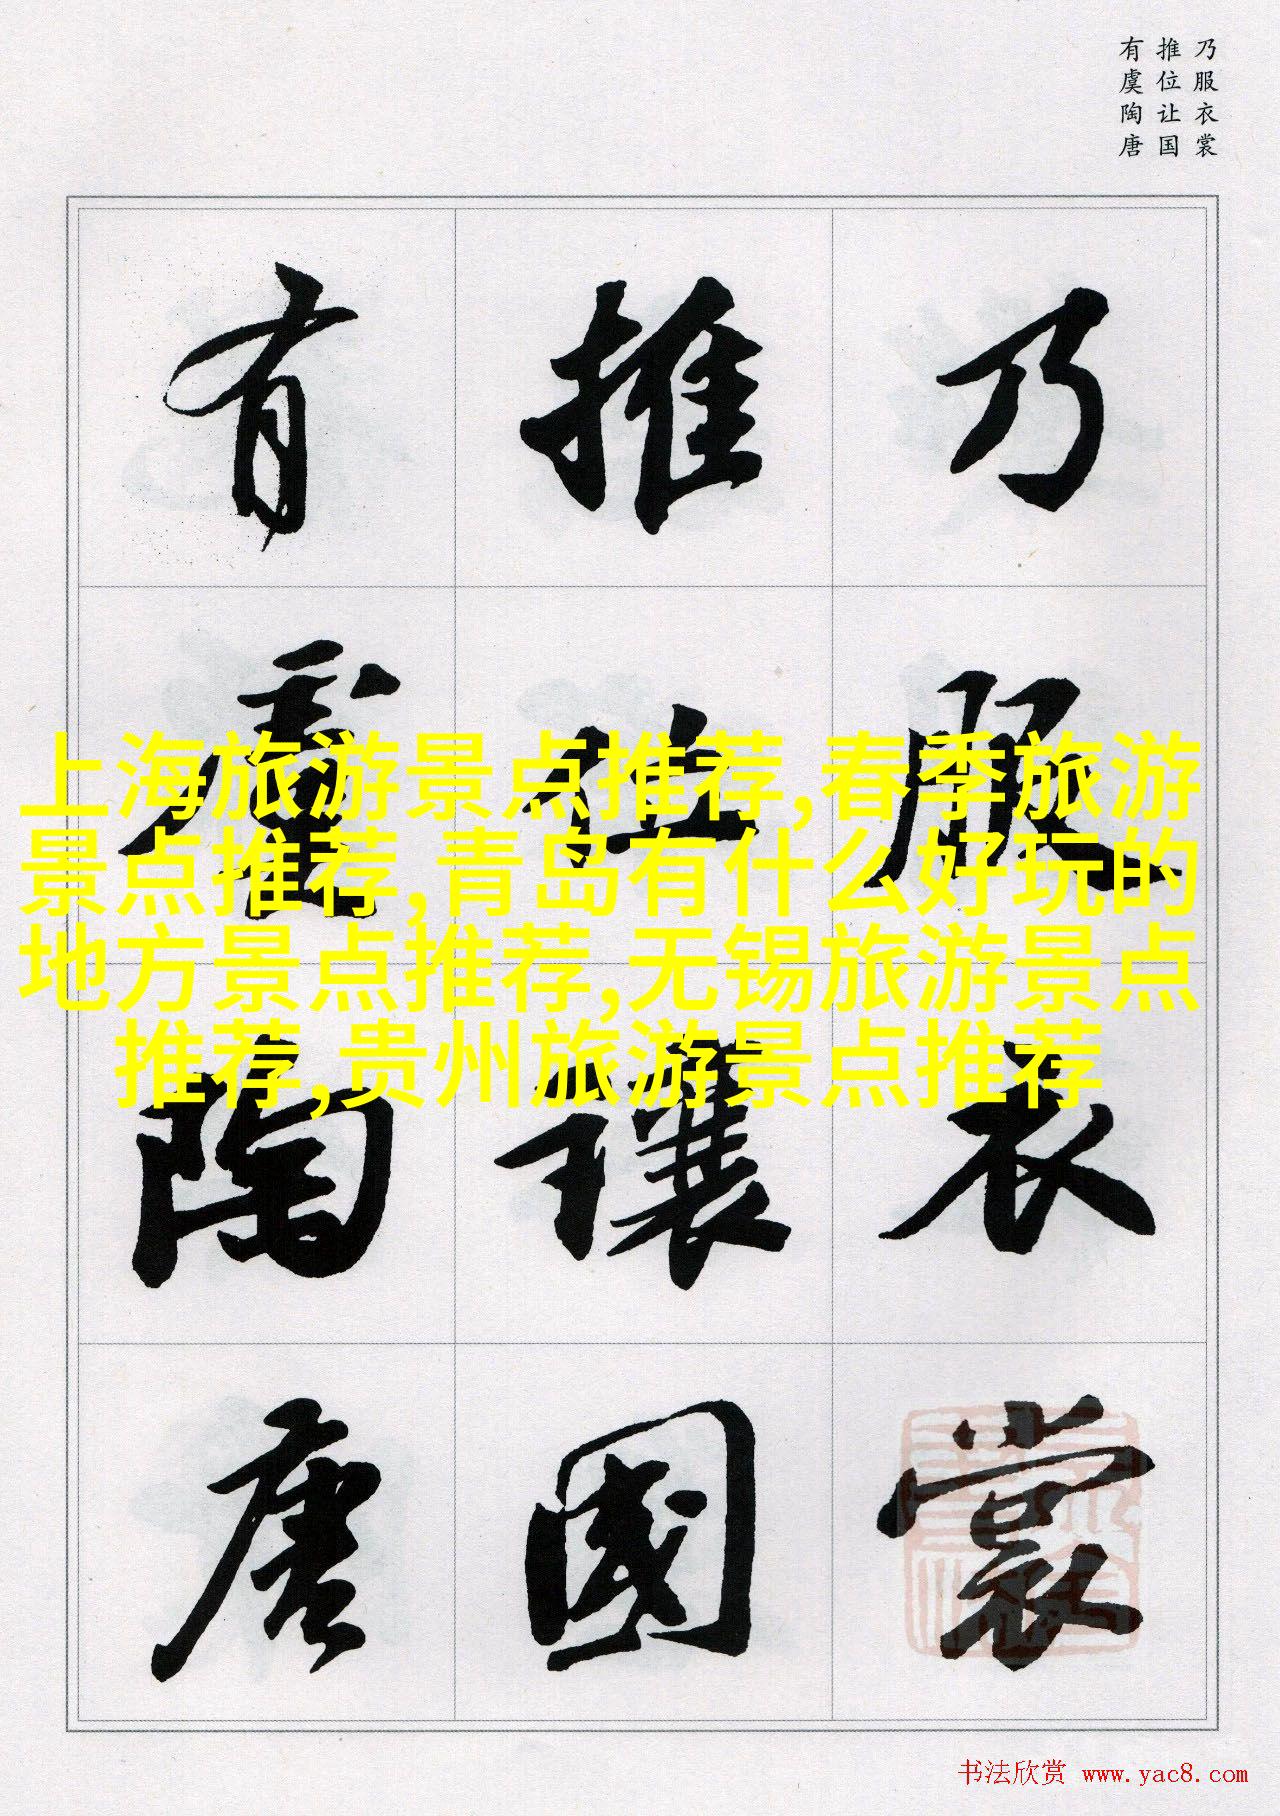 乃服衣裳
推位让国
有虞陶唐
乃服衣裳
推位讓國
有虞陶唐
上海旅游景点推荐,春季旅游
景点推荐,青岛有什么好玩的
地方景点推荐,无锡旅游景点
推荐,贵州旅游景点推荐
书法欣赏 www.yac8.com